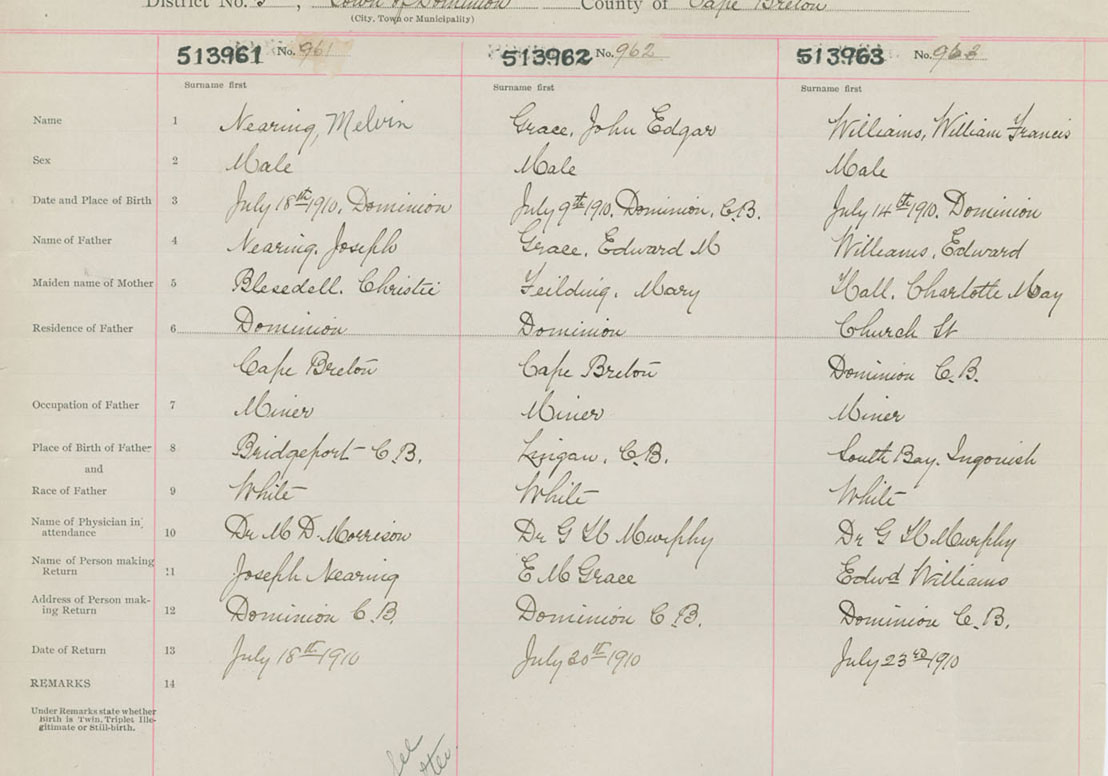 District No. 5, Town of Dominion County of Cape Breton
(City, Town or Municipality)
513961 No. 961 513962 No. 962 513963 No. 963
Surname first Surname first Surname first
Name 1 Nearing, Melvin Grace, John Edgar Williams, William Francis
Sex 2 Male Male Male
Date and Place of Birth 3 July 18th 1910. Dominion July 9th 1910. Dominion, C.B. July 14th 1910. Dominion
Name of Father 4 Nearing. Joseph Grace, Edward M Williams, Edward
Maiden name of Mother 5 Blesedell. Christie Feilding, Mary Hall. Charlotte May
Residence of Father 6 Dominion Dominion Church St
Cape Breton Cape Breton Dominion C.B.
Occupation of Father 7 Miner Miner Miner
Place of Birth of Father 8 Bridgeport C.B. Lingan, C.B. South Bay. Ingonish
and
Race of Father 9 White White White
Name of Physician in attendance 10 Dr M D Morrison Dr G H Murphy Dr G H Murphy
Name of Person making Return 11 Joseph Nearing E M Grace Edwd Williams
Address of Person mak-
ing Return 12 Dominion C.B. Dominion C.B. Dominion C.B.
Date of Return 13 July 18th 1910 July 20th 1910 July 23rd 1910
REMARKS 14
Under Remarks state whether
Birth is Twin, Triplet, Ille-
gitimate or Still-birth.
See